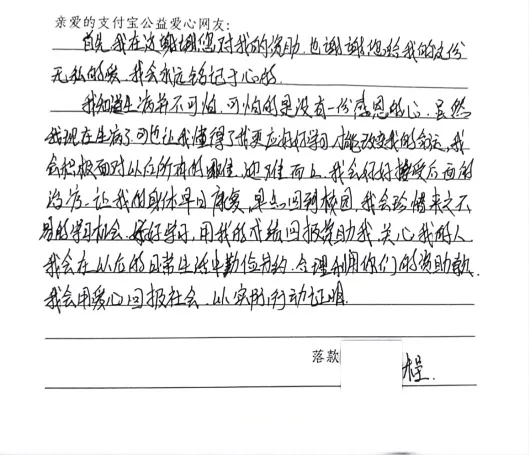 亲爱的支付宝公益爱心网友:
首先我在这谢谢您对我的资助,也谢谢您给我的这份
无私的爱,我会永远铭记于心的.
我知道生病并不可怕,可怕的是没有一份感恩的心,虽然
我现在生病了,可也让我懂得了我更应好好学习才能改变我的命运,我
会积极面对以后所有的困难,迎难而上,我会好好接受后面的
治疗,让我的身体早日康复,早点回到校园,我会珍惜来之不
易的学习机会,好好学习,用我的成绩回报资助我,关心我的人
我会在以后的日常生活中勤俭节约,合理利用你们的资助款.
我会用爱心回报社会,以实际行动证明.
落款